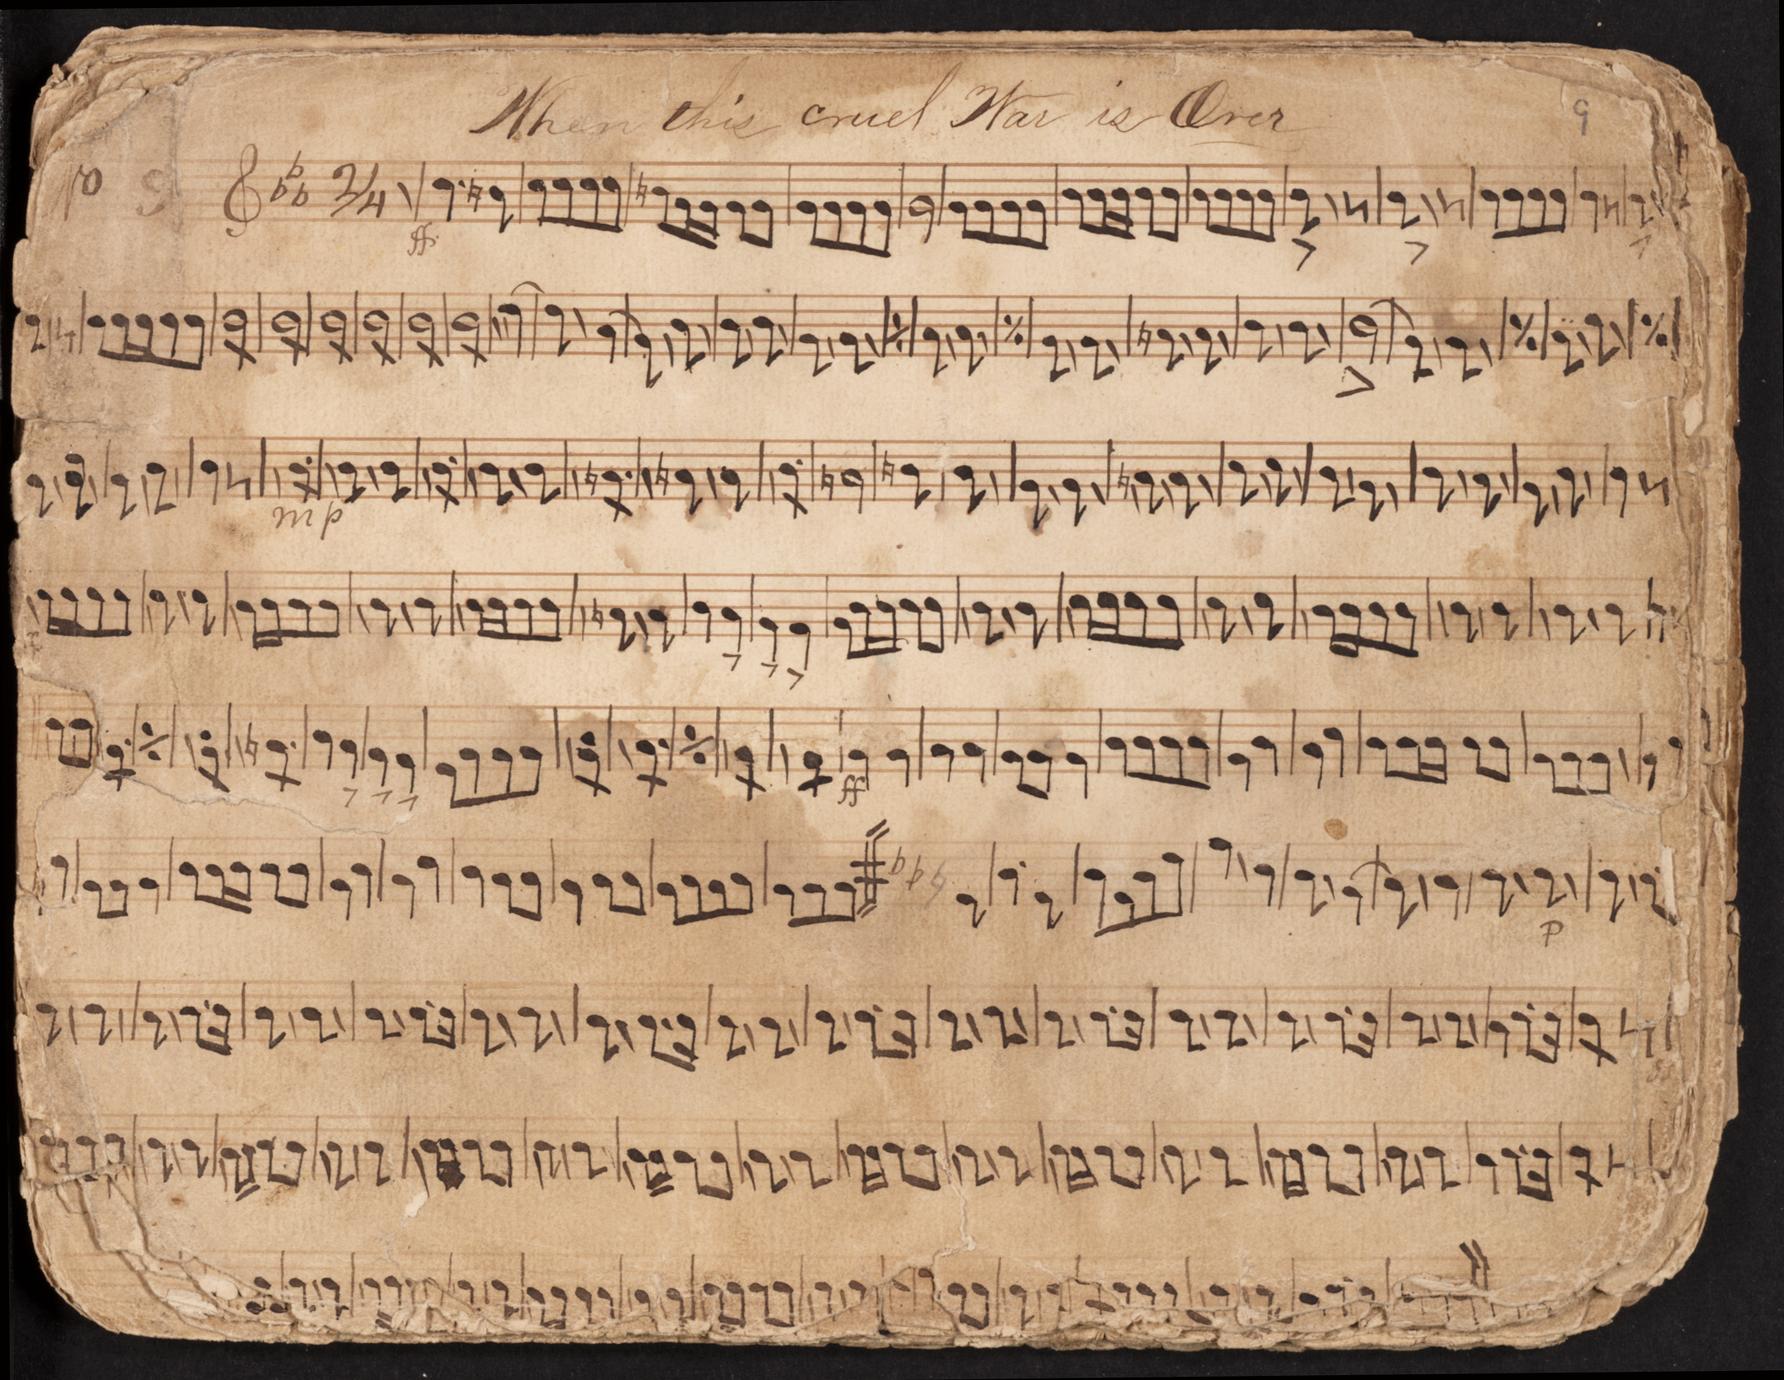 When this cruel War is Over
9
2/4
ff
mp
ff
P